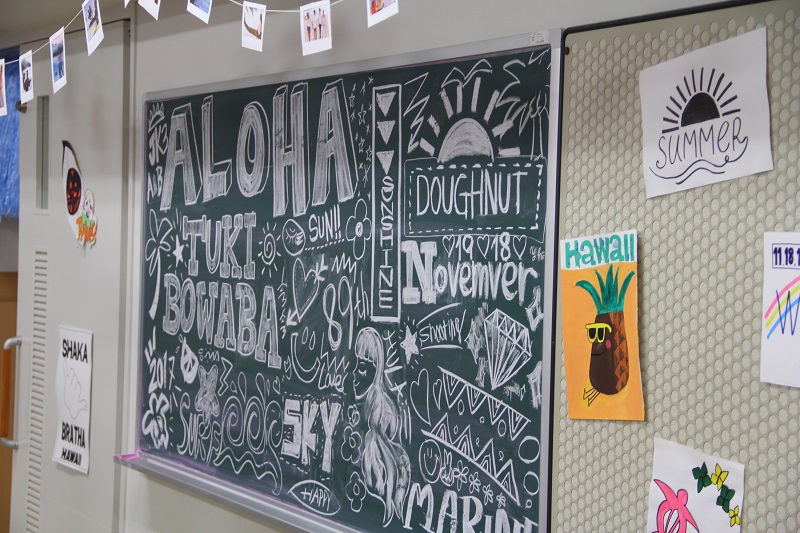 ALOHA
TUKI
BOWABA
SUN!!
89th
2017
Love
Surf
SKY
HAPPY
SUNSHINE
DOUGHNUT
19 18
Novemver
Shooting
MARINE
SUMMER
HAWAII
11.18.1
W
SHAKA
BRATHA
HAWAII